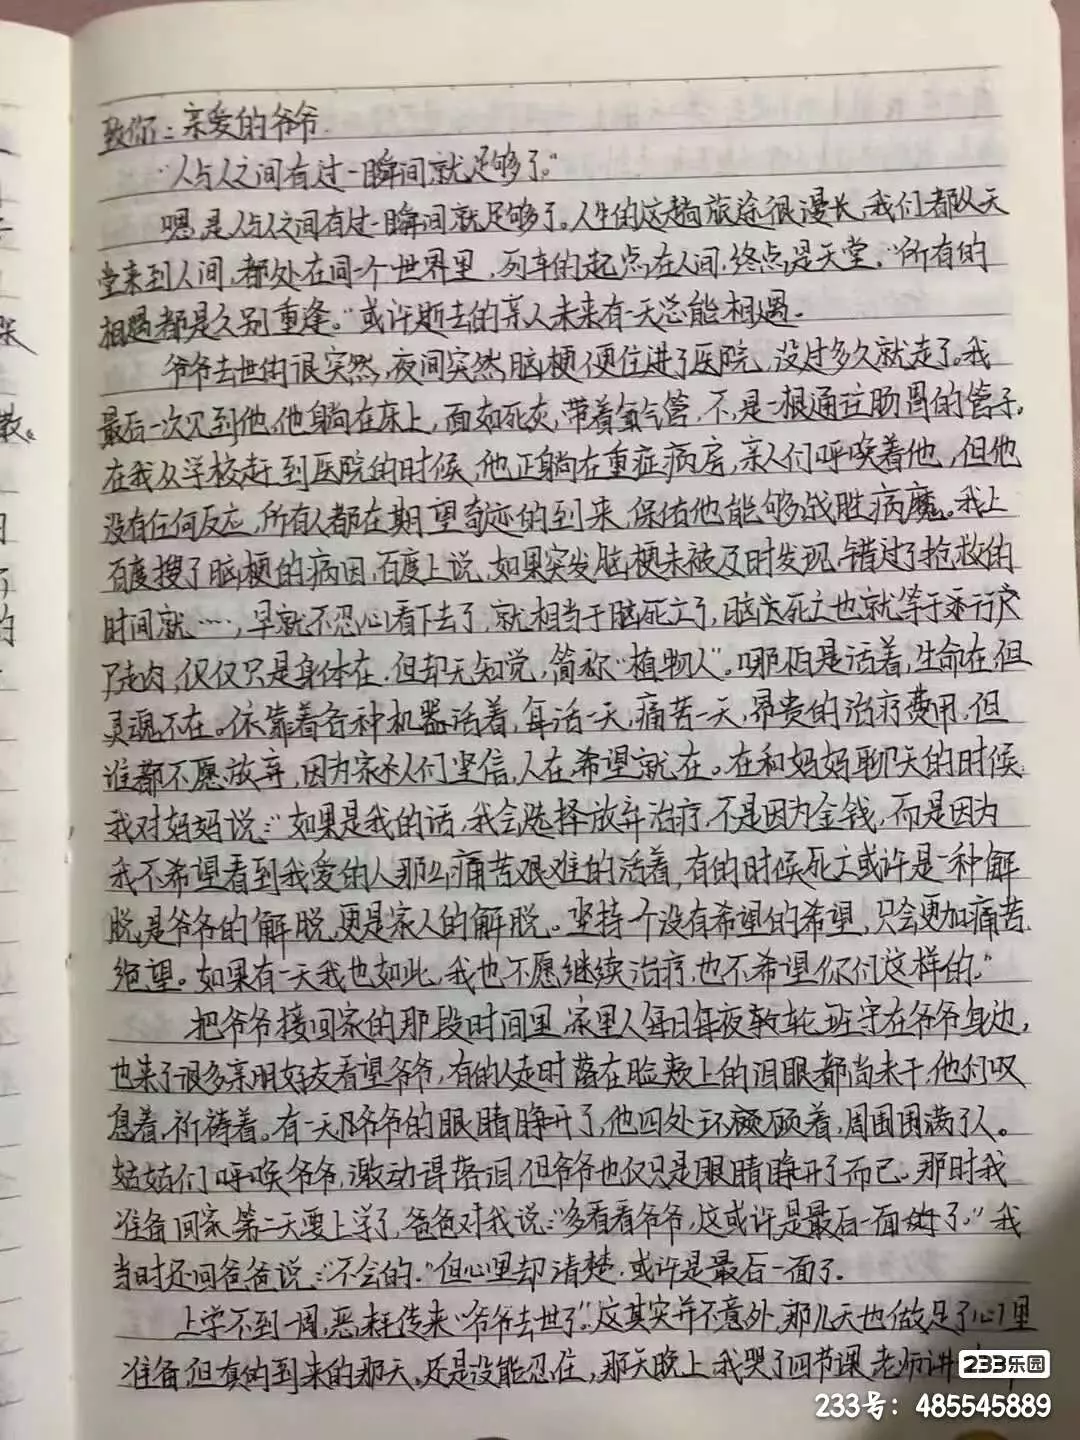 致你：亲爱的爷爷.
"人与人之间有过一瞬间就足够了."
嗯,是人与人之间有过一瞬间就足够了。人生的这趟旅途很漫长,我们都从天
堂来到人间,都处在同一个世界里,列车的起点在人间,终点是天堂."所有的
相遇都是久别重逢。"或许逝去的亲人未来有一天总能相遇.
爷爷去世的很突然,夜间突然脑梗便住进了医院,没过多久就走了。我
最后一次见到他,他躺在床上,面如死灰,带着氧气管,不,是一根通往肠胃的管子,
在我从学校赶到医院的时候,他正躺在重症病房,亲人们呼唤着他,但他
没有任何反应,所有人都在期望奇迹的到来,保佑他能够战胜病魔。我上
百度搜了脑梗的病因,百度上说,如果突发脑梗未被及时发现,错过了抢救的
时间就……,早就不忍心看下去了,就相当于脑死亡了,脑死亡也就等于行尸
走肉,仅仅只是身体在,但却无知觉,简称"植物人"。哪怕是活着,生命在,但
灵魂不在。依靠着各种机器活着,每活一天,痛苦一天,昂贵的治疗费用,但
谁都不愿放弃,因为家人们坚信,人在,希望就在。在和妈妈聊天的时候
我对妈妈说:"如果是我的话,我会选择放弃治疗,不是因为金钱,而是因为
我不希望看到我爱的人那么痛苦艰难的活着,有的时候死亡或许是一种解
脱,是爷爷的解脱,更是家人的解脱。坚持一个没有希望的希望,只会更加痛苦,
绝望。如果有一天我也如此,我也不愿继续治疗,也不希望你们这样的."
把爷爷接回家的那段时间里,家里人每日每夜轮班守在爷爷身边,
也来了很多亲朋好友看望爷爷,有的人走时落在脸颊上的泪眼都尚未干,他们叹
息着,祈祷着。有一天爷爷的眼睛睁开了,他四处环顾着,周围围满了人。
姑姑们呼唤爷爷,激动得落泪,但爷爷也仅只是眼睛睁开了而已。那时我
准备回家,第二天要上学了,爸爸对我说:"多看看爷爷,这或许是最后一面了。"我
当时还问爸爸说:"不会的."但心里却清楚,或许是最后一面了.
上学不到一周,恶耗传来"爷爷去世了",这其实并不意外,那几天也做足了心里
准备,但真的到来的那天,还是没能忍住,那天晚上,我哭了四节课,老师讲
233乐园
233号：485545889